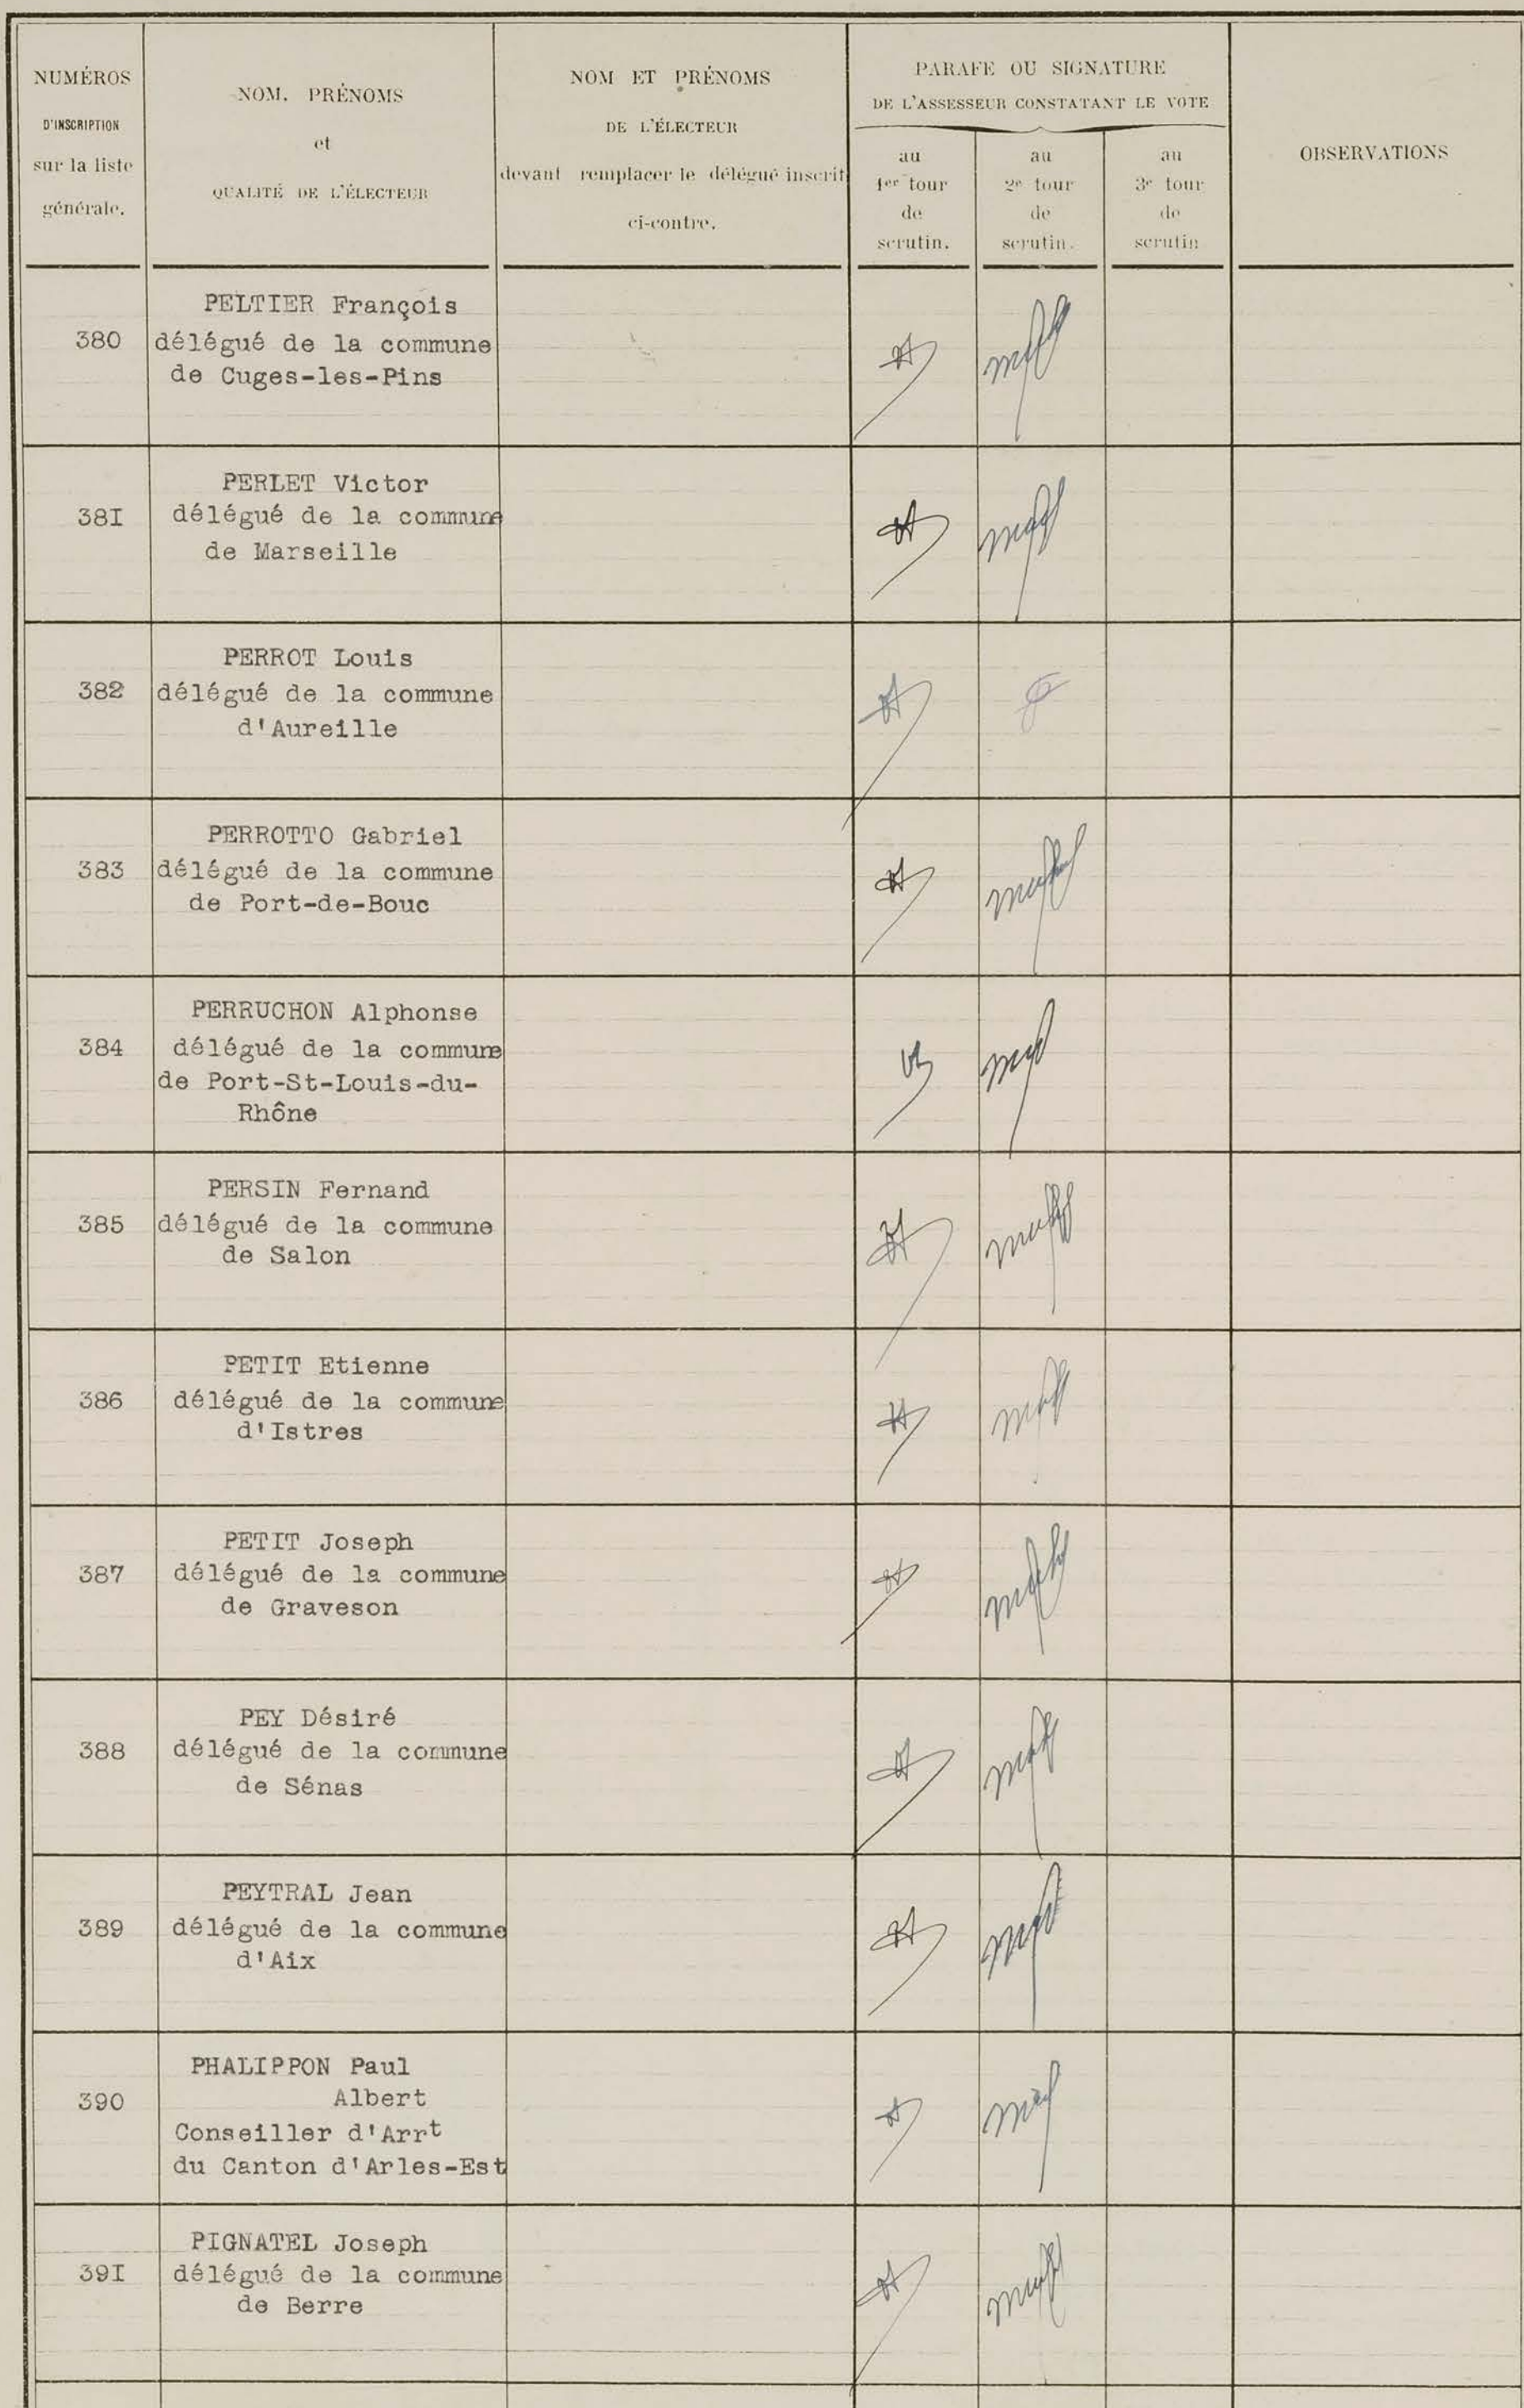 NUMÉROS
D'INSCRIPTION
sur la liste
générale.
NOM. PRÉNOMS
et
QUALITÉ DE L'ÉLECTEUR
NOM ET PRÉNOMS
DE L'ÉLECTEUR
devant remplacer le délégué inscrit
ci-contre.
PARAFE OU SIGNATURE
DE L'ASSESSEUR CONSTATANT LE VOTE
au
1er tour
de
scrutin.
au
2e tour
de
scrutin.
au
3e tour
de
scrutin
OBSERVATIONS
PELTIER François
380 délégué de la commune
de Cuges-les-Pins
PERLET Victor
38I délégué de la commune
de Marseille
PERROT Louis
382 délégué de la commune
d'Aureille
PERROTTO Gabriel
383 délégué de la commune
de Port-de-Bouc
PERRUCHON Alphonse
384 délégué de la commune
de Port-St-Louis-du-
Rhône
PERSIN Fernand
385 délégué de la commune
de Salon
PETIT Etienne
386 délégué de la commune
d'Istres
PETIT Joseph
387 délégué de la commune
de Graveson
PEY Désiré
388 délégué de la commune
de Sénas
PEYTRAL Jean
389 délégué de la commune
d'Aix
PHALIPPON Paul
390 Albert
Conseiller d'Arrt
du Canton d'Arles-Est
PIGNATEL Joseph
39I délégué de la commune
de Berre